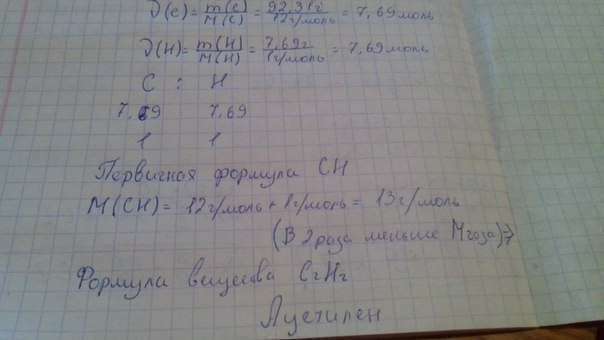 ν(C) = m(C)/M(C) = 92,31г/12г/моль = 7,69моль
ν(H) = m(H)/M(H) = 7,69г/1г/моль = 7,69моль
C : H
7,69 7,69
1 1
Первичная формула CH
M(CH) = 12г/моль + 1г/моль = 13г/моль
(В 2 раза меньше Mгаза) ⇒
Формула вещества C2H2
Ацетилен